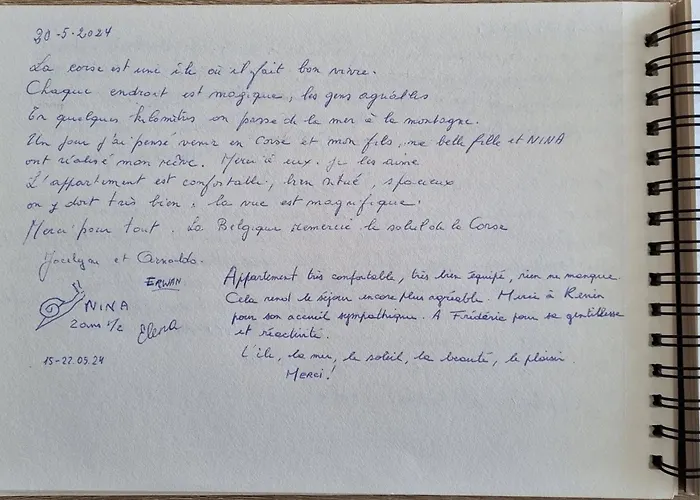 30-5-2024
La corse est une île où il fait bon vivre.
Chaque endroit est magique, les gens agréables
En quelques kilomètres on passe de la mer à la montagne.
Un jour j'ai pensé venir en Corse et mon fils, ma belle fille et NINA
ont réalisé mon rêve. Merci à eux. Je les aime
L'appartement est confortable, bien situé, spacieux
on y dort très bien, la vue est magnifique.
Merci pour tout. La Belgique remercie le soleil de la Corse
Jocelyne et Arnaldo.
ERWAN
NINA
2 ans 1/2
Elena
15-22.05.24
Appartement très confortable, très bien équipé, rien ne manque.
Cela rend le séjour encore plus agréable. Merci à
pour son accueil sympathique. A Frédéric pour sa gentillesse
et réactivité.
L'île, la mer, le soleil, la beauté, le plaisir.
MERCI!